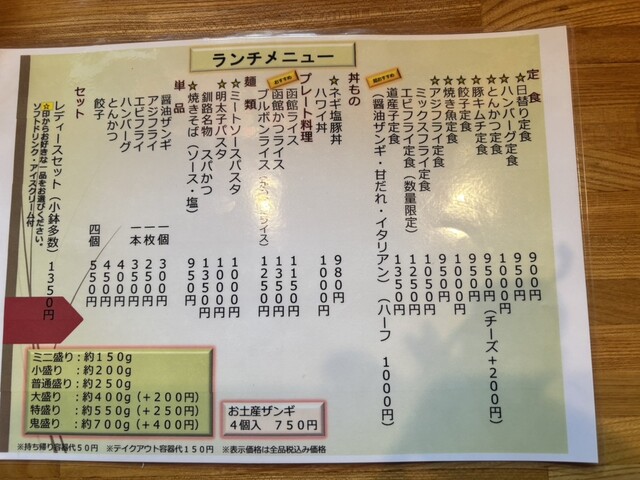 ランチメニュー
定食
☆日替り定食 900円
☆ハンバーグ定食 950円
☆とんかつ定食 1000円
☆豚キムチ定食 950円 (チーズ+200円)
☆餃子定食 1000円
☆焼き魚定食 1000円
☆アジフライ定食 950円
ミックスフライ定食 1050円
エビフライ定食(数量限定) 1250円
道産子定食 1350円
(醤油ザンギ・甘だれ・イタリアン) (ハーフ 1000円)
丼もの
☆ネギ塩豚丼 980円
ハワイ丼 1000円
プレート料理
函館ライス 1150円
おすすめ
函館かつライス 1350円
ブルボンライス ライス) 1250円
麺類
☆ミートソースパスタ 1000円
☆明太子パスタ 1000円
釧路名物 スパかつ 1350円
☆焼きそば(ソース・塩) 950円
単品
醤油ザンギ 一個 300円
アジフライ 一枚 250円
エビフライ 一本 350円
ハンバーグ 400円
とんかつ 450円
餃子 四個 550円
セット
レディースセット(小鉢多数) 1350円
☆印からお好きな一品をお選びください。
ソフトドリンク・アイスクリーム付
ミニ盛り:約150g
小盛り:約200g
普通盛り:約250g
大盛り:約400g(+200円)
特盛り:約550g(+250円)
鬼盛り:約700g(+400円)
お土産ザンギ
4個入 750円
※持ち帰り容器代50円 ※テイクアウト容器代150円 ※表示価格は全品税込み価格